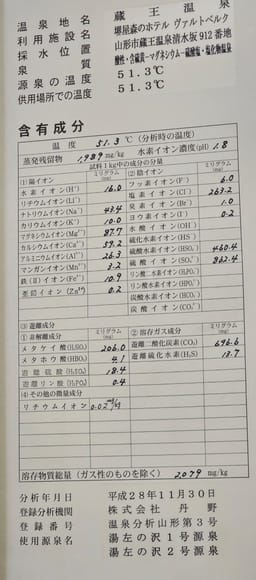 温泉地名 蔵王温泉
利用施設名 堺屋森のホテル ヴァルトベルク
採水位置 山形市蔵王温泉清水坂912番地
泉質 酸性・含硫黄ーマグネシウムー硫酸塩・塩化物温泉
源泉の温度 51.3℃
供用場所での温度 51.3℃
含有成分
温度 51.3 ℃ (分析時の温度)
蒸発残留物 1,989 mg/kg 水素イオン濃度(pH) 1.8
試料1kg中の成分の分量
(1)陽イオン ミリグラム(mg) (2)陰イオン ミリグラム(mg)
水素イオン(H⁺) 16.0 フッ素イオン(F⁻) 6.0
リチウムイオン(Li⁺) 塩素イオン(Cl⁻) 263.2
ナトリウムイオン(Na⁺) 43.4 臭素イオン(Br⁻) 1.0
カリウムイオン(K⁺) 10.0 ヨウ素イオン(I⁻) 0.2
マグネシウムイオン(Mg²⁺) 87.7 水酸イオン(OH⁻)
カルシウムイオン(Ca²⁺) 59.2 硫化水素イオン(HS⁻)
アルミニウムイオン(Al³⁺) 26.3 硫酸水素イオン(HSO₄⁻) 460.4
マンガンイオン(Mn²⁺) 3.2 硫酸イオン(SO₄²⁻) 862.4
鉄(Ⅱ)イオン(Fe²⁺) 10.9 リン酸水素イオン
亜鉛イオン(Zn²⁺) 0.2 リン酸水素イオン
炭酸水素イオン(HCO₃⁻)
炭酸イオン(CO₃²⁻)
③遊離成分
①非解離成分 ミリグラム(mg) ②溶存ガス成分 ミリグラム(mg)
メタケイ酸(H₂SiO₃) 206.0 遊離二酸化炭素(CO₂) 696.6
メタホウ酸(HBO₂) 4.1 遊離硫化水素(H₂S) 13.7
遊離硫酸(H₂SO₄) 18.4
遊離リン酸(H₃PO₄) 0.4
(4)その他の微量成分
リチウムイオン 0.02 mg/kg
溶存物質総量(ガス性のものを除く) 2,079 mg/kg
分析年月日 平成28年11月30日
登録分析機関 株式会社 丹野
登録番号 温泉分析山形第3号
使用源泉名 湯左の沢1号源泉
湯左の沢2号源泉